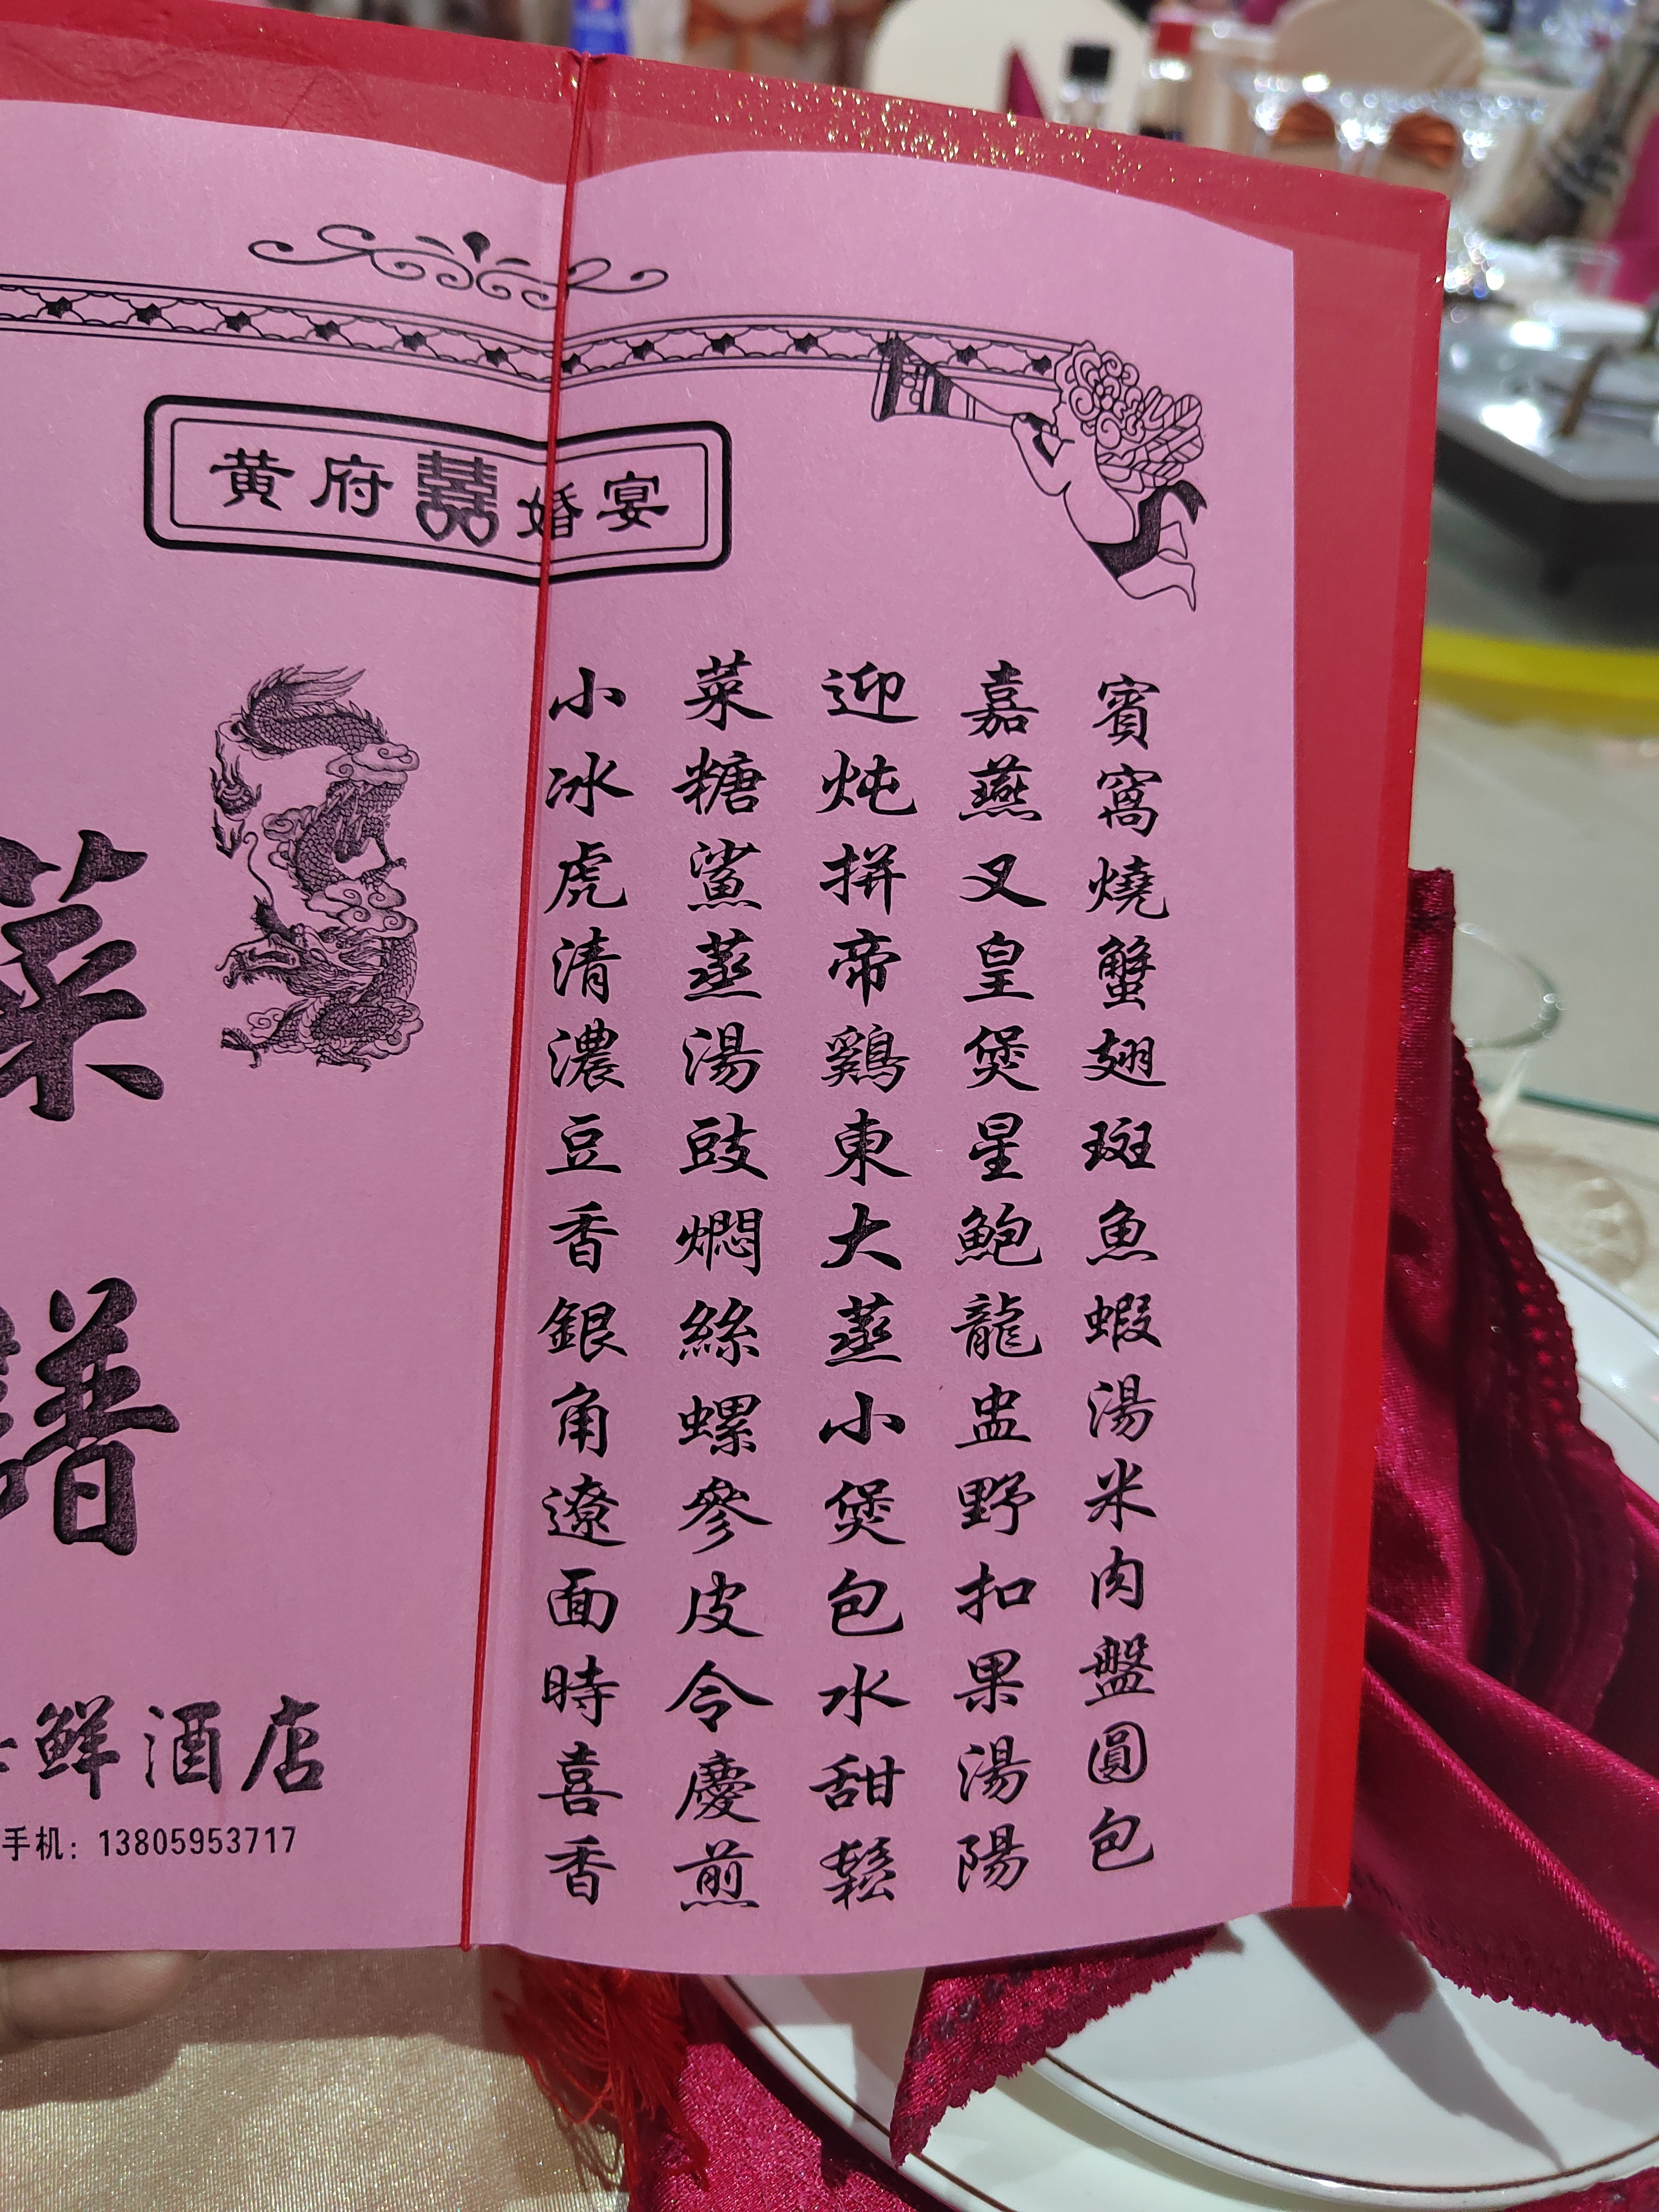 黄府囍婚宴
小菜迎嘉賓
冰糖炖燕窩
虎鯊拼叉燒
清蒸帝皇蟹
濃湯鷄煲翅
豆豉東星斑
香燜大鮑魚
銀絲蒸龍蝦
角螺小盅湯
遼參煲野米
面皮包扣肉
時令水果盤
喜慶甜湯圓
香煎鬆陽包
菜
譜
鮮酒店
手机：13805953717